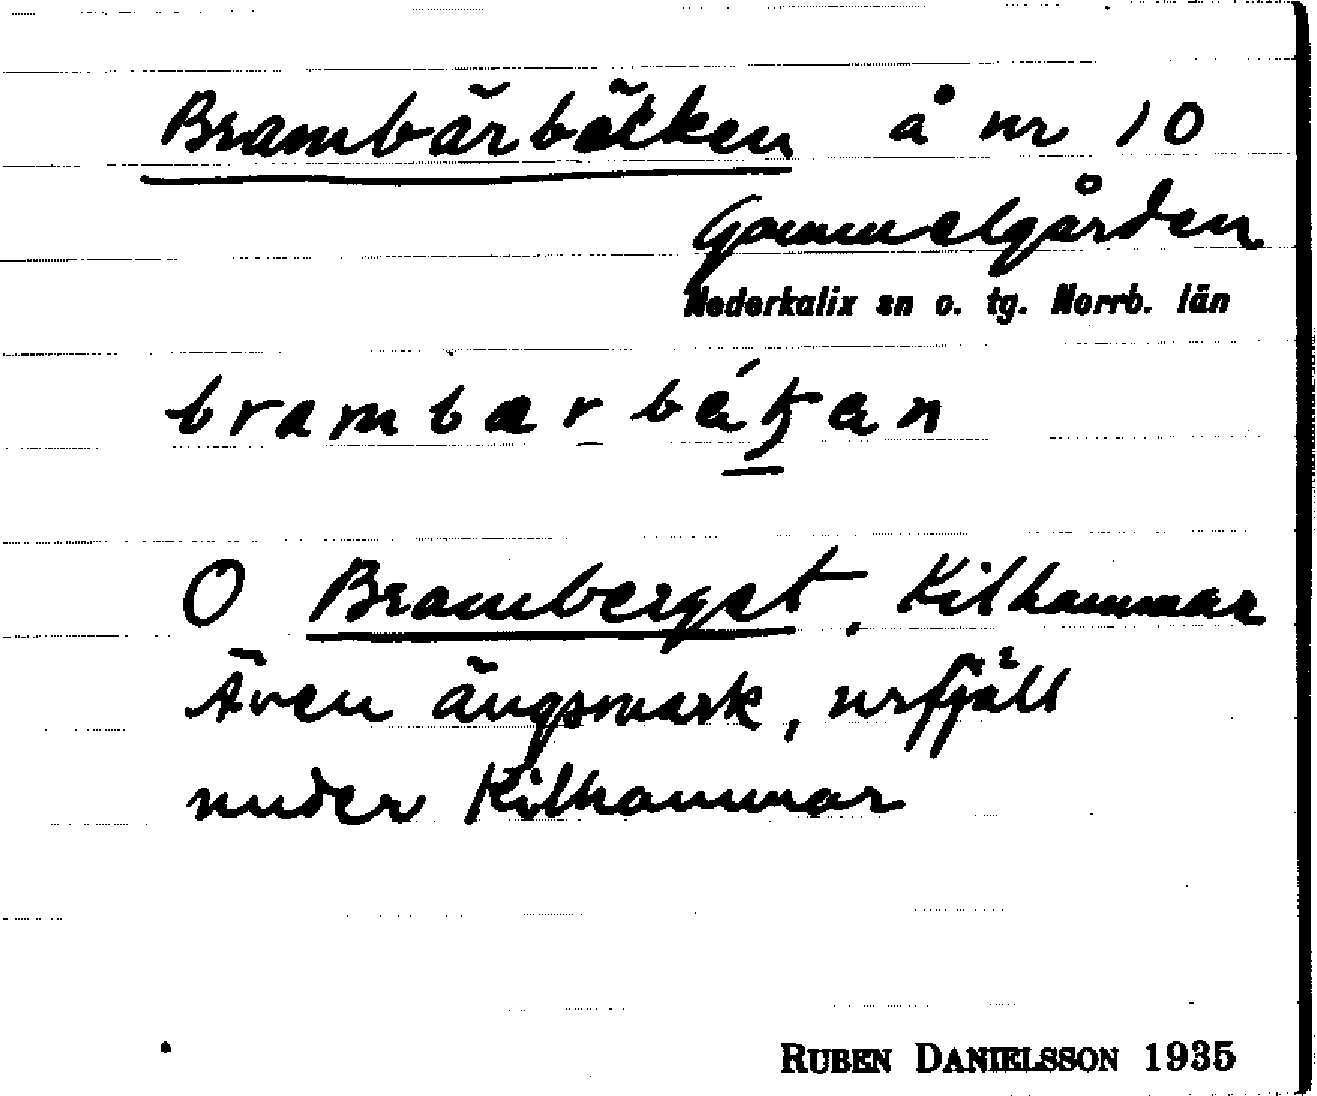 Brambärbäcken å nr 10
Gammelgården
Nederkalix sn o. tg. Norrb. län
brambær
O Bramberget, Kilhammar
Även ängsmark, urfjäll
under Kilhammar
RUBEN DANIELSSON 1935